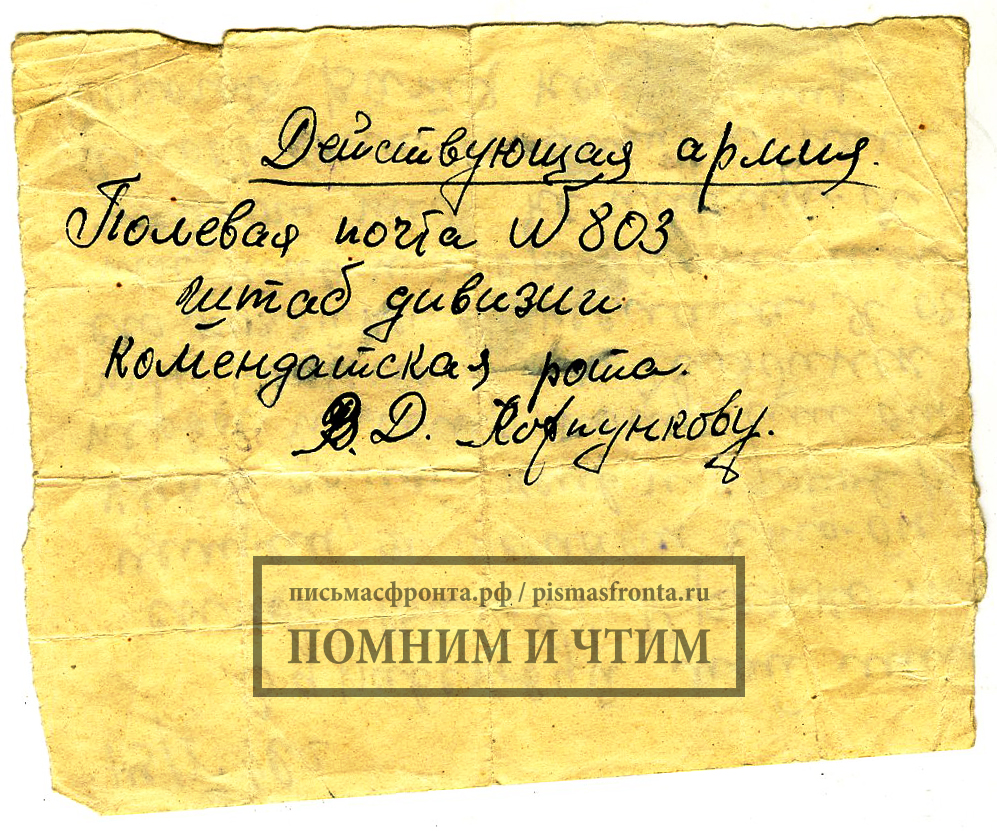 Действующая армия.
Полевая почта № 803
штаб дивизии
Комендатская рота.
В.Д. Корпункову.
письмасфронта.рф / pismasfronta.ru
ПОМНИМ И ЧТИМ